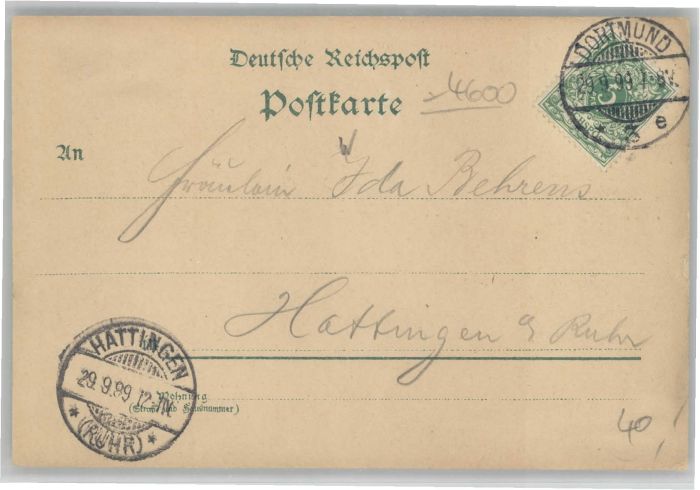 Deutsche Reichspost
Postkarte
4600
DORTMUND
29.9.99
3 e
5
An
Fräulein Ida Behrens
Hattingen a Ruhr
HATTINGEN
29.9.99 12-1N.
* (RUHR) *
Wohnung
(Straße und Hausnummer)
40,